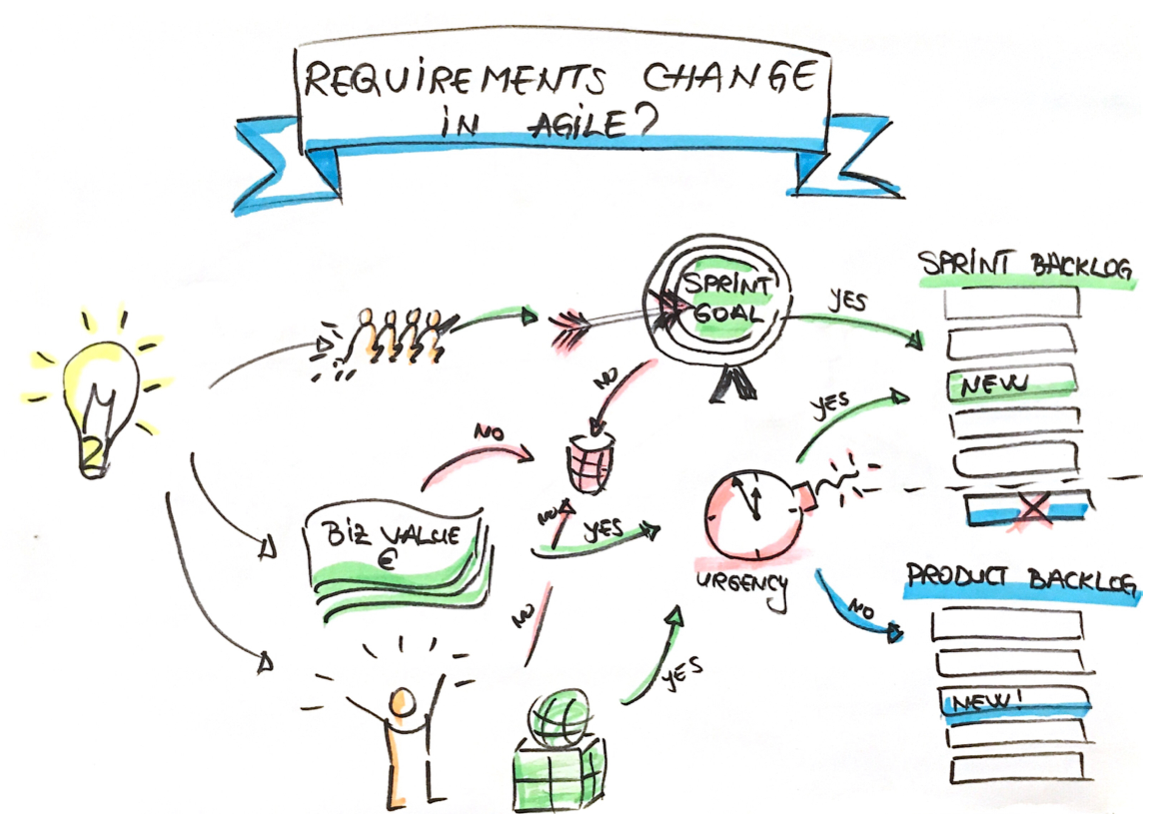 REQUIREMENTS CHANGE
IN AGILE?
SPRINT
GOAL
YES
SPRINT BACKLOG
NEW
NO
YES
NO
BIZ VALUE
€
NO
YES
URGENCY
NO
PRODUCT BACKLOG
NO
YES
NEW!